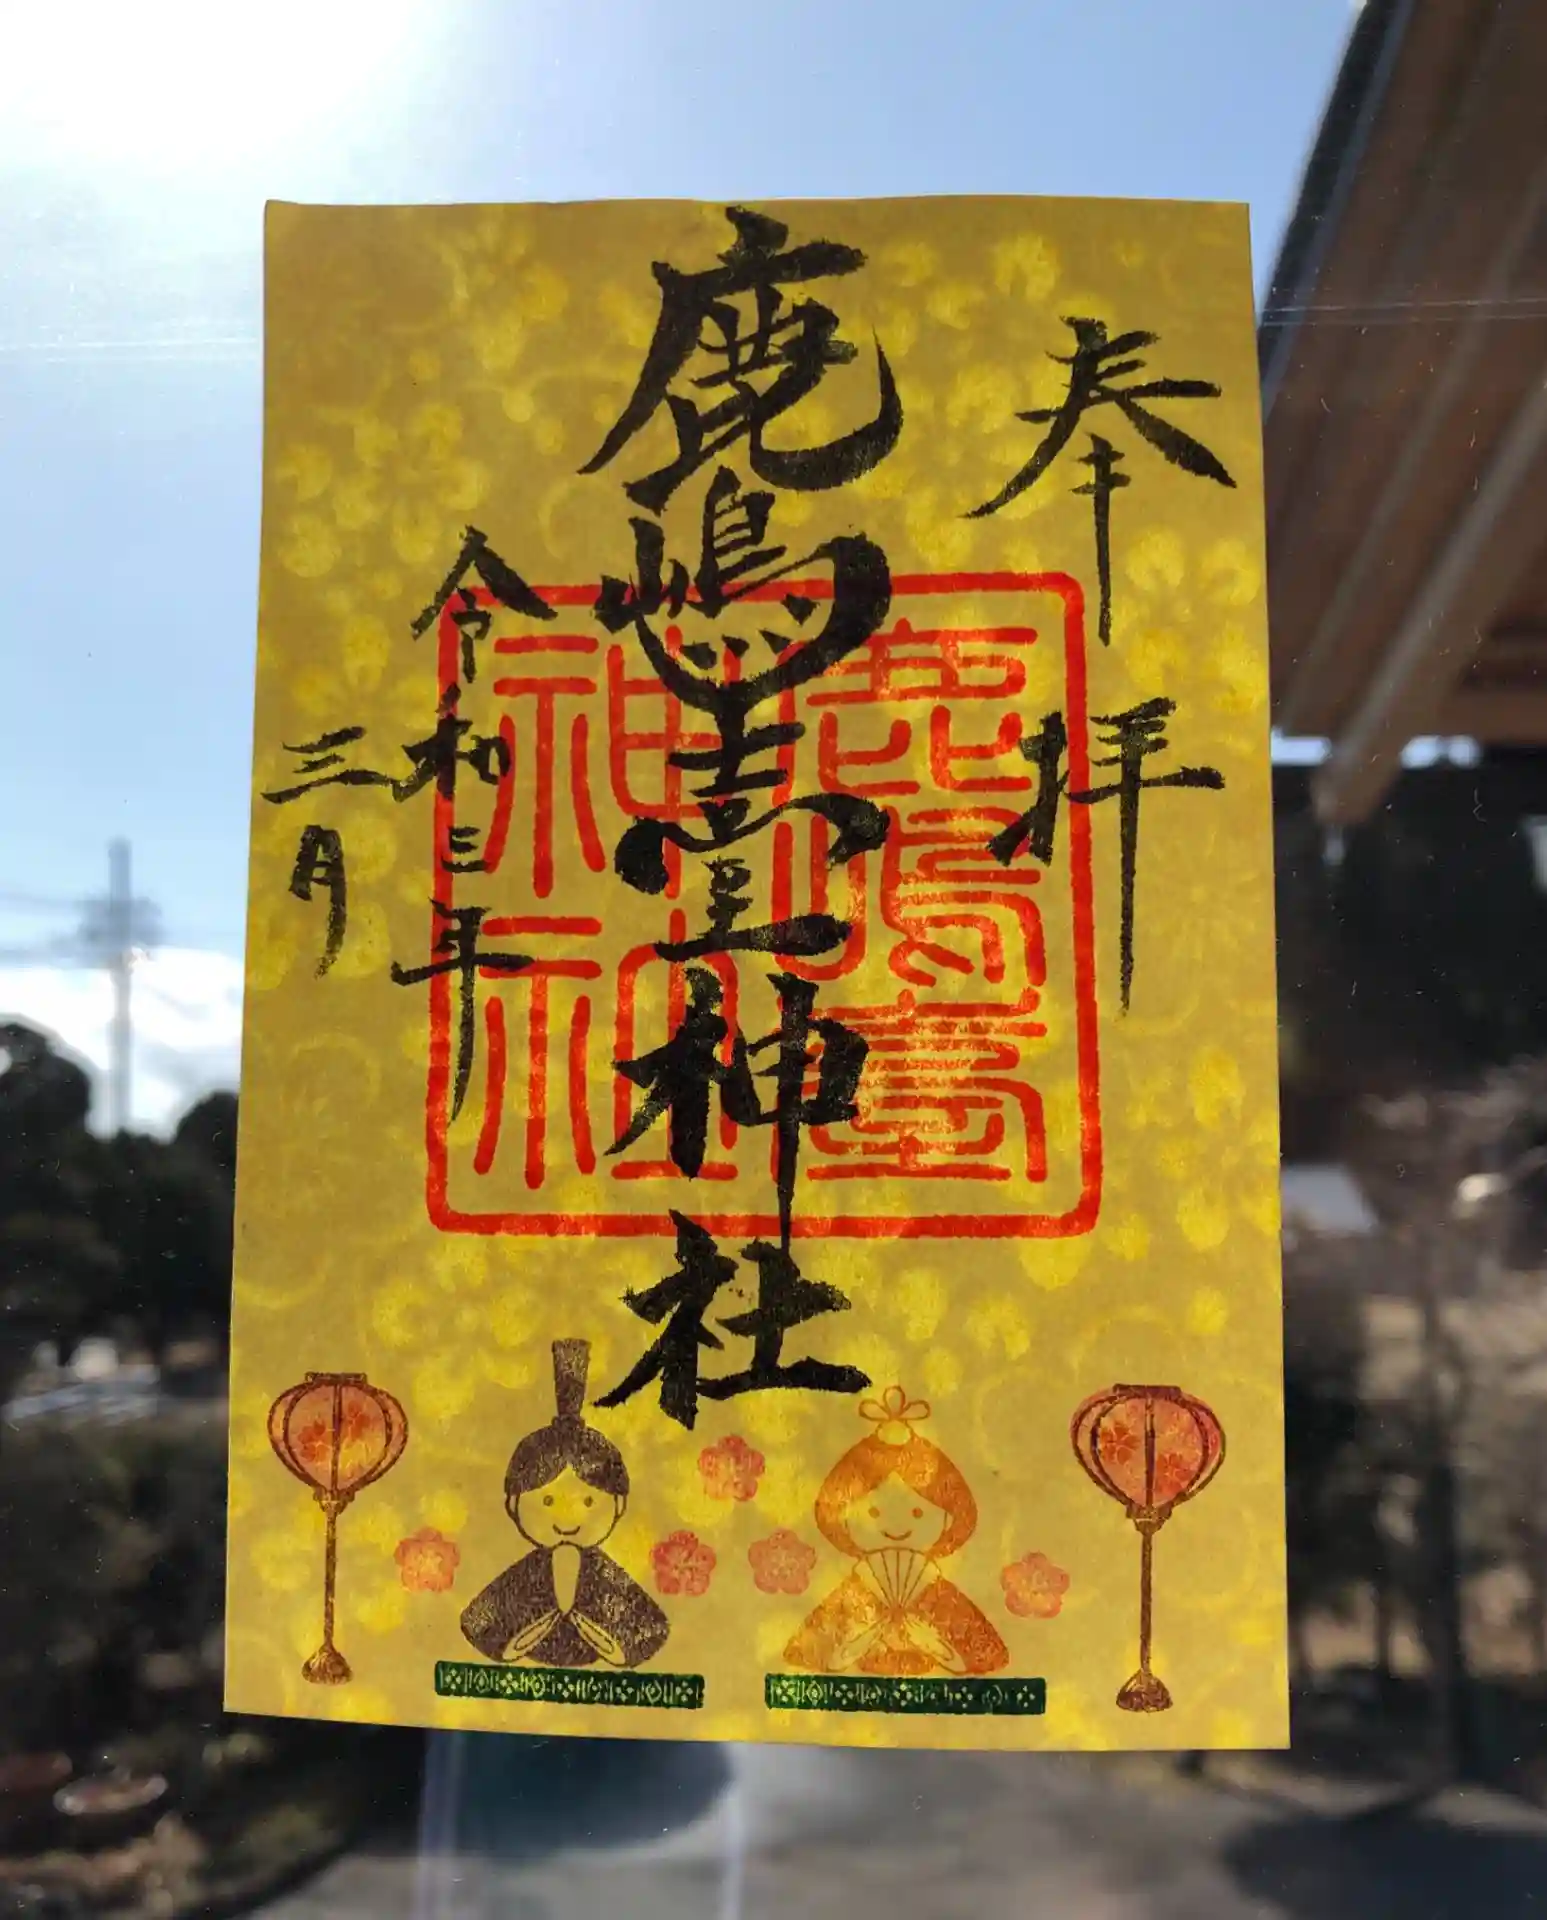 奉拝
鹿嶋臺神社
鹿嶋臺
神社
令和三年
三月